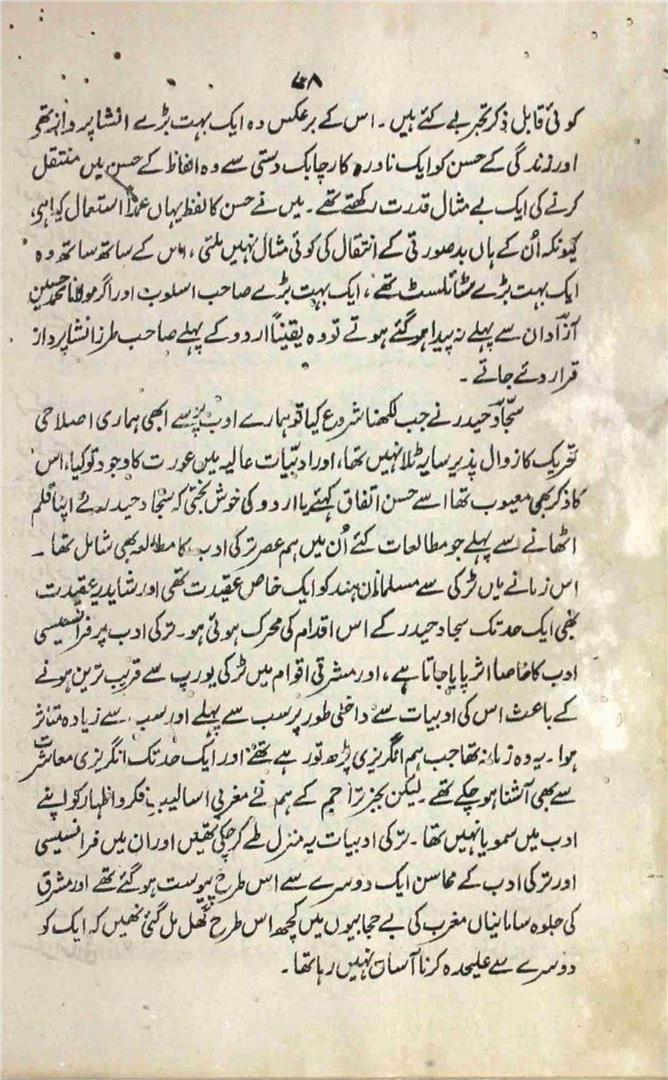 ۴۸
کوئی قابل ذکر تجربے کئے ہیں۔ اس کے برعکس وہ ایک بہت بڑے انشا پرداز تھے
اور زندگی کے حسن کو ایک نادرہ کار چابک دستی سے وہ الفاظ کے حسن میں منتقل
کرنے کی ایک بے مثال قدرت رکھتے تھے۔ میں نے حسن کا لفظ یہاں عمداً استعمال کیا ہی،
کیونکہ اُن کے ہاں بدصورتی کے انتقال کی کوئی مثال نہیں ملتی، اس کے ساتھ ساتھ وہ
ایک بہت بڑے سٹائلسٹ تھے، ایک بہت بڑے صاحب اسلوب اور اگر مولانا محمد حسین
آزاد ان سے پہلے نہ پیدا ہو گئے ہوتے تو وہ یقیناً اردو کے پہلے صاحب طرز انشا پرداز
قرار دئے جاتے۔
سجاد حیدر نے جب لکھنا شروع کیا تو ہمارے ادب پر سے ابھی ہماری اصلاحی
تحریک کا زوال پذیر سایہ ٹلا نہیں تھا، اور ادبیّات عالیہ میں عورت کا وجود تو کیا، اس
کا ذکر بھی معیوب تھا اسے حسن اتفاق کہئے یا اردو کی خوش بختی کہ سجاد حیدر نے اپنا قلم
اٹھانے سے پہلے جو مطالعات کئے اُن میں ہم عصر ترکی ادب کا مطالعہ بھی شامل تھا۔
اس زمانے میں ٹرکی سے مسلمانان ہند کو ایک خاص عقیدت تھی اور شاید یہ عقیدت
بھی ایک حد تک سجاد حیدر کے اس اقدام کی محرک ہوئی ہو۔ ترکی ادب پر فرانسیسی
ادب کا خاصا اثر پایا جاتا ہے، اور مشرقی اقوام میں ٹرکی یورپ سے قریب ترین ہونے
کے باعث اس کی ادبیات سے داخلی طور پر سب سے پہلے اور سب سے زیادہ متاثر
ہوا۔ یہ وہ زمانہ تھا جب ہم انگریزی پڑھ تو رہے تھے اور ایک حد تک انگریزی معاشرت
سے بھی آشنا ہو چکے تھے۔ لیکن بجز تراجم کے ہم نے مغربی اسالیب فکر و اظہار کو اپنے
ادب میں سمویا نہیں تھا۔ ترکی ادبیات یہ منزل طے کر چکی تھیں اور ان میں فرانسیسی
اور ترکی ادب کے محاسن ایک دوسرے سے اس طرح پیوست ہو گئے تھے اور مشرق
کی جلوہ سامانیاں مغرب کی بے حجابیوں میں کچھ اس طرح گھل مل گئی تھیں کہ ایک کو
دوسرے سے علیحدہ کرنا آسان نہیں رہا تھا۔